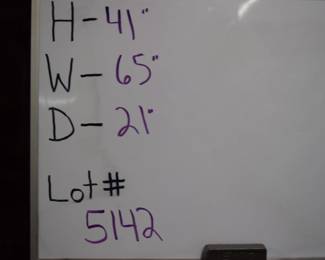 H-41"
W-65"
D-21"
Lot#
5142